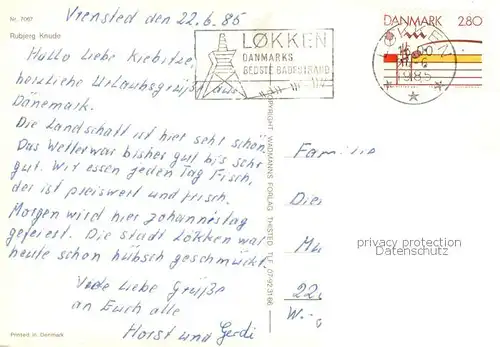 Nr. 7067
Rubjerg Knude
Vrensted den 22.6.85
Hallo liebe Kiebitze,
herzliche Urlaubsgrüße aus
Dänemark.
Die Landschaft ist hier sehr schön.
Das Wetter war bisher gut bis sehr
gut. Wir essen jeden Tag Fisch,
der ist preiswert und frisch.
Morgen wird hier Johannestag
gefeiert. Die Stadt Løkken war
heute schon hübsch geschmückt.
Viele liebe Grüße
an Euch alle
Horst und Gerdi
Printed in Denmark
LØKKEN
DANMARKS
BEDSTE BADESTRAND
DANMARK 280
1985
COPYRIGHT WADMANNS FORLAG THISTED TLF. 07-92 31 66
Familie
Die
Mu
22
W.-
privacy protection
Datenschutz